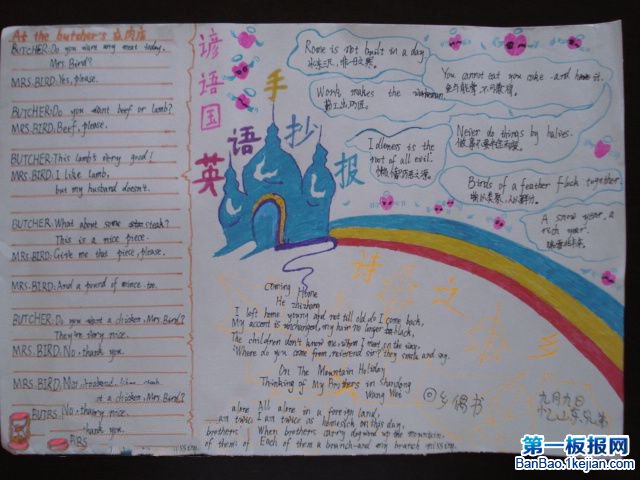 At the butcher's 在肉店
BUTCHER: Do you want any meat today,
Mrs. Bird?
MRS. BIRD: Yes, please.
BUTCHER: Do you want beef or lamb?
MRS. BIRD: Beef, please.
BUTCHER: This lamb's very good!
MRS. BIRD: I like lamb,
but my husband doesn't.
BUTCHER: What about some steak?
This is a nice piece.
MRS. BIRD: Give me that piece, please.
MRS. BIRD: And a pound of mince too.
BUTCHER: Do you want a chicken, Mrs. Bird?
They're very nice.
MRS. BIRD: No, thank you.
MRS. BIRD:
a chicken, Mrs. Bird?
No,
thank you.
BIRS
谚语国
英语手抄报
Rome is not built in a day
冰冻三尺,非一日之寒。
Work makes the workman.
勤工出巧匠。
You cannot eat you cake and have it.
鱼与熊掌,不可兼得。
Idleness is the
root of all evil.
Never do things by halves.
Birds of a feather flock together.
A snow year, a
rich year.
诗之乡
Coming Home
He zhizhang
I left home young and not till old do I come back,
My accent is unchanged, my hair no longer black,
The children don't know me, whom I meet on the way,
"Where do you come from, reverend sir?" they smile and say.
On The Mountain Holiday
Thinking of My Brothers in shandong
Wang Wei
alone All alone in a foreign land,
am twice I am twice as homesick on this day,
brothers When brothers carry dogwood up the mountain,
of them: of Each of them a branch and my branch missing.
回乡偶书
九月九日
忆山东兄弟
第一板报网
BanBao.1kejian.com